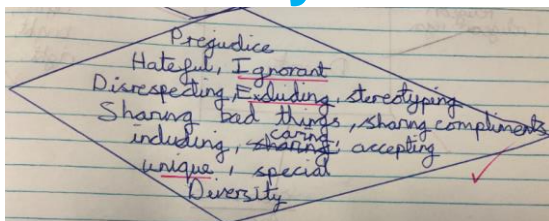 Prejudice
Hateful, Ignorant
Disrespecting, Excluding, stereotyping
Sharing bad things, sharing compliments
including, sharing, caring, accepting
unique, special
Diversity